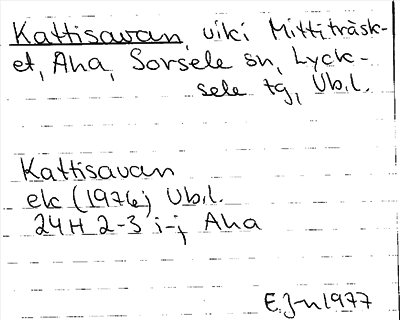 Kattisavan, viki Mittiträsk-
et, Aha, Sorsele sn, Lyck-
sele tg, Vb.l.
Kattisavan
ek (1976) Vb.l.
24H 2-3 i-j Aha
E.J-n 1977